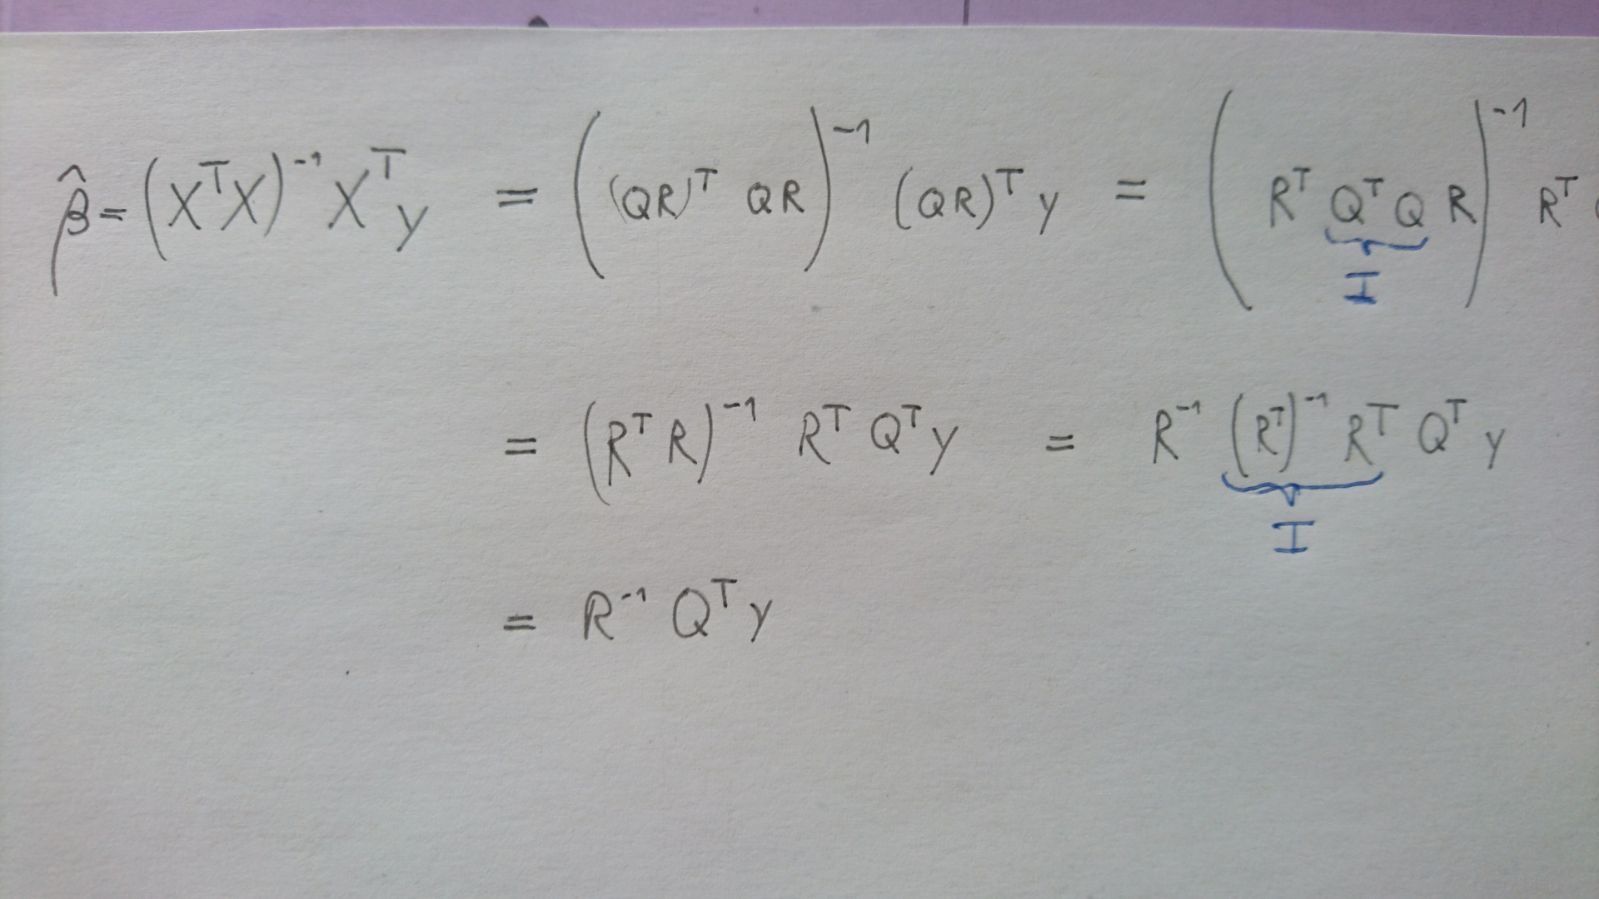 β̂ = (XᵀX)⁻¹ Xᵀ y = ((QR)ᵀ QR)⁻¹ (QR)ᵀ y = (Rᵀ QᵀQ R)⁻¹ Rᵀ
I
= (Rᵀ R)⁻¹ Rᵀ Qᵀ y = R⁻¹ (Rᵀ)⁻¹ Rᵀ Qᵀ y
I
= R⁻¹ Qᵀ y